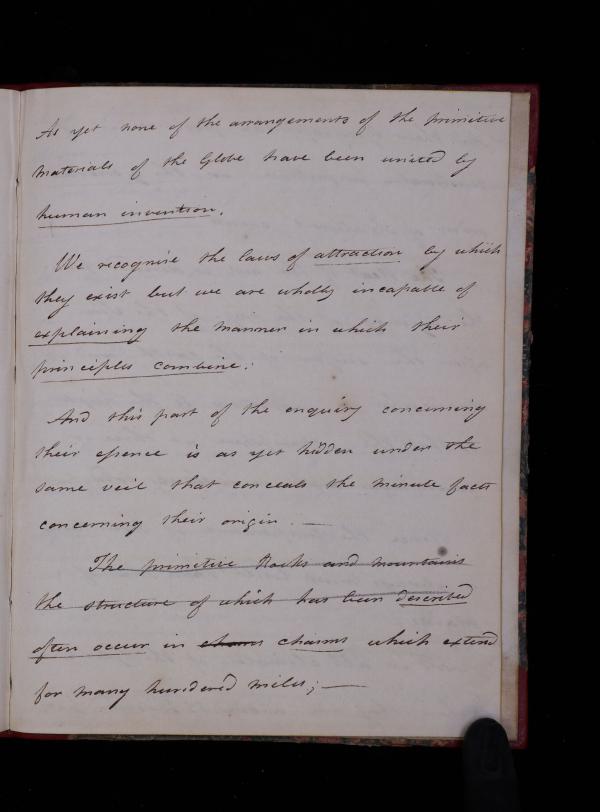 As yet none of the arrangements of the primitive
materials of the Globe have been united by
human invention.
We recognise the laws of attraction by which
they exist but we are wholly incapable of
explaining the manner in which their
principles combine.
And this part of the enquiry concerning
their essence is as yet hidden under the
same veil that conceals the minute facts
concerning their origin. —
The primitive Rocks and mountains
the structure of which has been described
often occur in chains chasms which extend
for many hundered miles; —